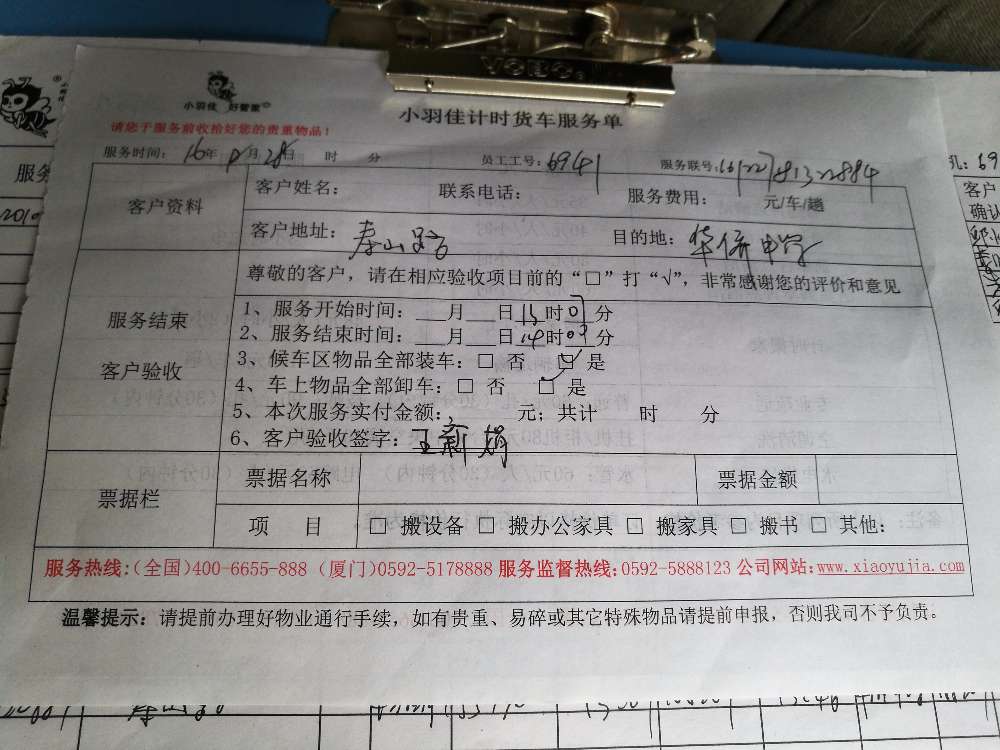 VOBO
小羽佳 好管家
小羽佳计时货车服务单
请您于服务前收拾好您的贵重物品！
服务时间：16年 月28日 时 分 员工工号：6941 服务联号：
客户资料 客户姓名： 联系电话： 服务费用： 元/车/趟
客户地址：泰山路 目的地：华侨中学
尊敬的客户，请在相应验收项目前的“□”打“√”，非常感谢您的评价和意见
服务结束 客户验收
1、服务开始时间：___月___日13时01分
2、服务结束时间：___月___日14时03分
3、候车区物品全部装车：□ 否 ☑ 是
4、车上物品全部卸车：□ 否 ☑ 是
5、本次服务实付金额： 元；共计 时 分
6、客户验收签字：王新娟
票据栏 票据名称 票据金额
项 目 □ 搬设备 □ 搬办公家具 □ 搬家具 □ 搬书 □ 其他：
服务热线：(全国)400-6655-888 (厦门)0592-5178888 服务监督热线：0592-5888123 公司网站：www.xiaoyujia.com
温馨提示：请提前办理好物业通行手续，如有贵重、易碎或其它特殊物品请提前申报，否则我司不予负责。